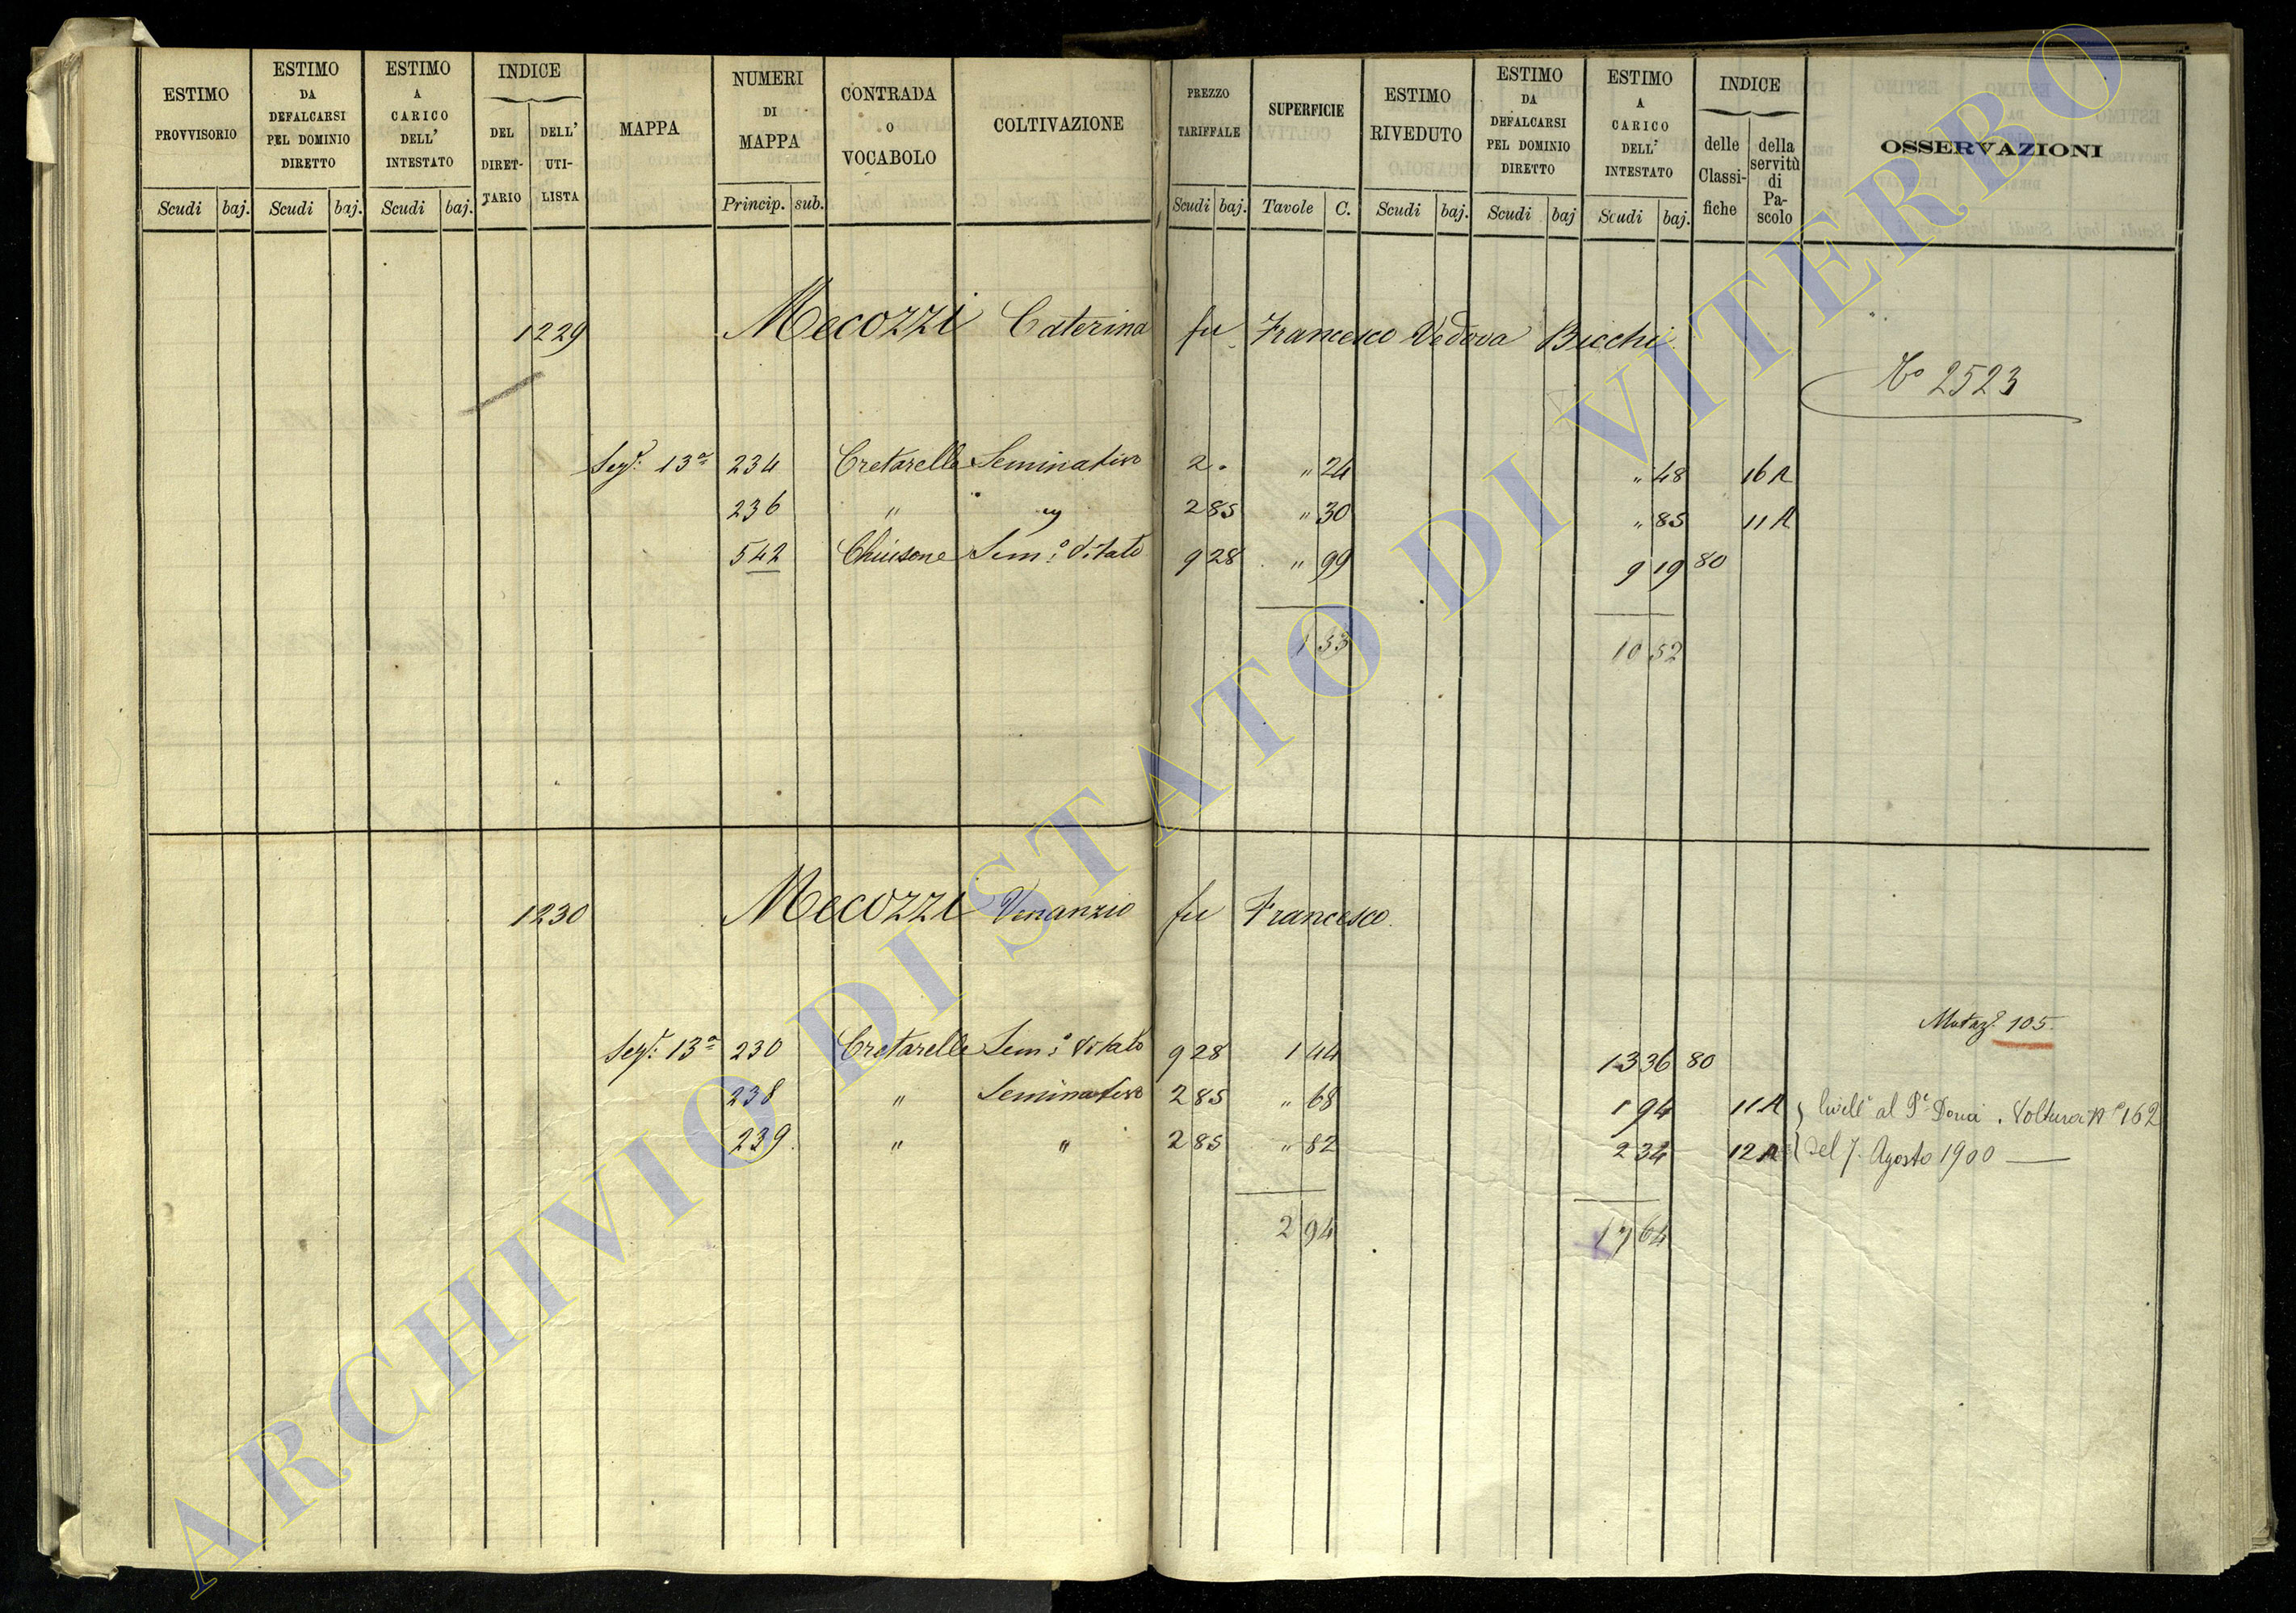 ESTIMO PROVVISORIO
ESTIMO DA DEFALCARSI PEL DOMINIO DIRETTO
ESTIMO A CARICO DELL' INTESTATO
INDICE
DEL DIRET-TARIO
DELL' UTI-LISTA
MAPPA
NUMERI DI MAPPA
CONTRADA O VOCABOLO
COLTIVAZIONE
PREZZO TARIFFALE
SUPERFICIE
ESTIMO RIVEDUTO
ESTIMO DA DEFALCARSI PEL DOMINIO DIRETTO
ESTIMO A CARICO DELL' INTESTATO
INDICE
delle Classi-fiche
della servitù di Pa-scolo
OSSERVAZIONI
Scudi baj. Scudi baj. Scudi baj. Princip. sub. Scudi baj. Tavole C. Scudi baj. Scudi baj Scudi baj.
1229 Mecozzi Caterina fu Francesco Vedova Bicchi
No 2523
Sez. 13a 234 Cretarelle Seminativo 2 . " 24 " 48 16 A
236 " " 2 85 " 30 " 85 11 A
542 Chiusone Sem.o Vitato 9 28 " 99 9 19 80
1 53 10 52
1230 Mecozzi Venanzio fu Francesco.
Mutaz. 105
Sez. 13a 230 Cretarelle Sem.o Vitato 9 28 1 44 13 36 80
238 " Seminativo 2 85 " 68 1 94 11 A livell° al Voltura N° 162
239 " " 2 85 " 82 2 34 12 A del 7 Agosto 1900
2 94 17 64
ARCHIVIO DI STATO DI VITERBO